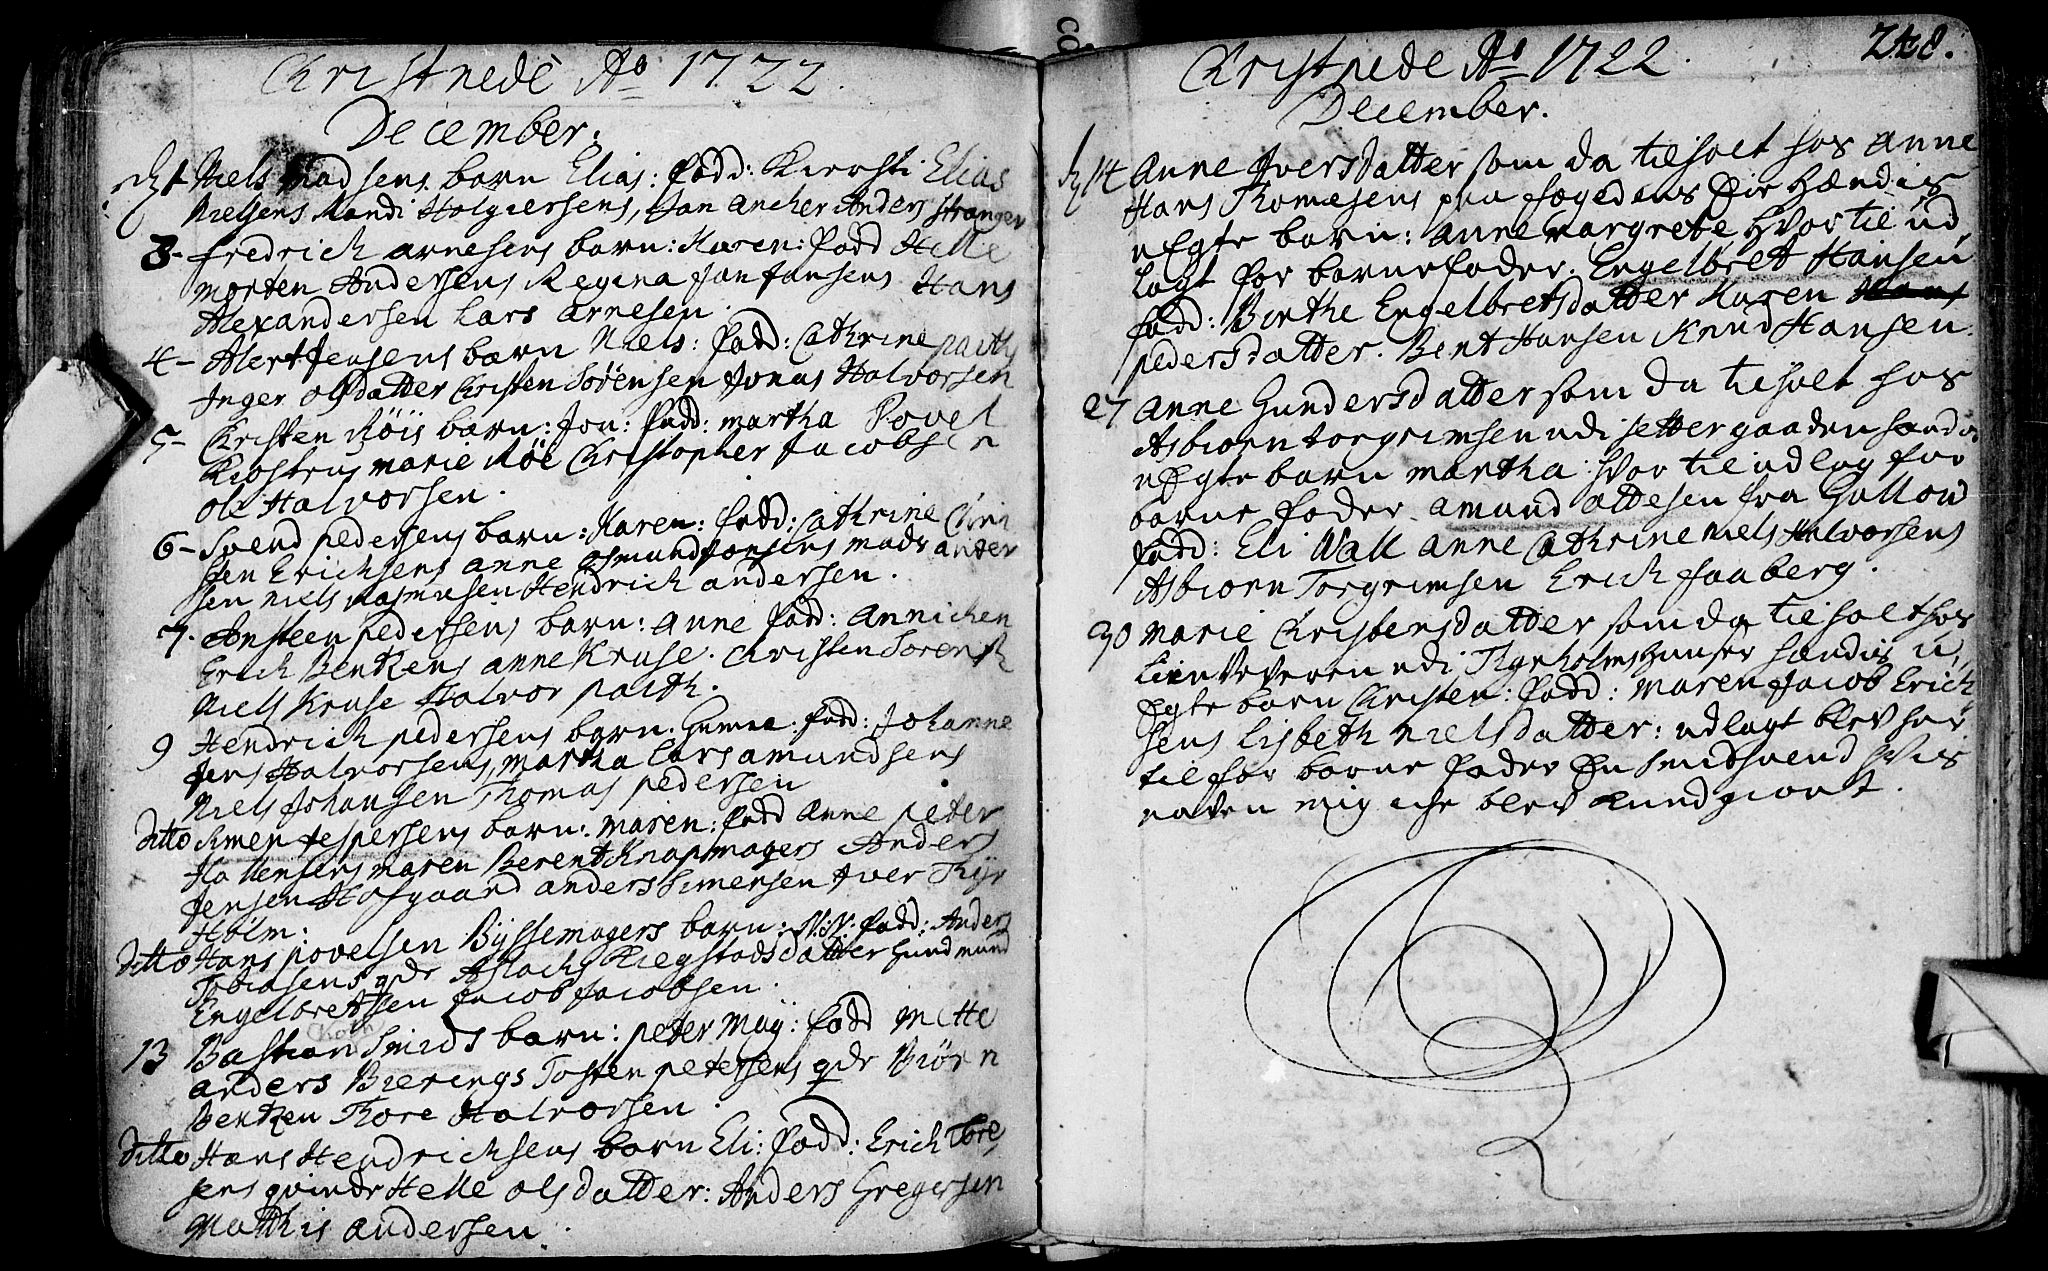 Christnede Ao 1722.
December.
d 1 Niels Madsens barn Elias: fadd: Kiersti Elias
Nielsens Randi Holgiersens, Jan Ancher Anders Stranger
3- fredrich arnesens barn: Karen: fadd Helle
Morten Andersens Regina Jan Jansens Hans
Alexandersen Lars arnesen.
4- Alert Jensens barn Niels: fadd: Cathrine paith
Inger Olsdatter Christen Sörensen Jonas Halvorsen
5- Christen Röis barn: Jon: fadd: martha Povel
Klostrus marie Röe Christopher Jacobsen
Ole Halvorsen.
6- Svend pedersens barn: Karen: fadd: Cathrine Chri
sten Erichsens anne Osmund Jonsens mads ander
sen Niels Rasmusen Hendrich andersen.
7. Onsteen pedersens barn: Anne fadd: Annichen
Erich Bentzens anne Kruse. Christen Sorensk
Niels Kruse Halvor paith.
9 Hendrich pedersens barn. fadd: Johanne
Jens Halvorsens, martha Lars amundsens
Niels Johansen Thomas pedersen
ditto Simen Jespersens barn: maren: fadd Anne peter
Hollensens maren Berent Knapmagers Anders
Jensen Hofgaard anders Simensen Iver Thyr
Holm:
ditto Hans povelsen Byssemagers barn: N:N: fadd: Anders
Tobiasens qdr Aslachs Kiegstadsdatter Gundmund
Engelbretsen Jacob Jacobsen.
13 Bastian Smids barn: peter Muy: fadd Mette
anders Bierings Tosten petersens qdr Biörn
Bentzen Thore Halvorsen.
ditto Hans Hendrichsens barn Eli: fadd: Erich Tore
sens qvinde Helle Olsdatter: Anders Gregersen
Mathis andersen.
Christnede Ao 1722.
248.
December.
d 14 Anne Iversdatter som da tilholt hos Anne
Hans Thomesens paa fogedens Öir Hændis
uEgte barn: Anne margrete hvor til ud
lagt for barnefader. Engelbret Hansen
fadd: Berthe Engelbretsdatter Karen
pedersdatter. Bent Hansen Knud Hansen.
27 Anne Gundersdatter som da tilholt hos
Asbiorn torgrimsen udi settergaaden hændis
uEgte barn martha: hvor til udlag for
barne fader amund Ottesen fra
fadd: Eli Wall anne Cathrine Niels Halvorsens
Asbiorn Torgrimsen Erich faaberg.
30 Marie Christensdatter som da tilholt hos
Linveveren udi Thyrholms Huuser hændis u
Egte barn Christen: fadd: Maren Jacob Erich
sens Lisbeth Nielsdatter: udlagt blev her
til for barne fader En smidsvend hvis
naven mig iche blev kundgiort.